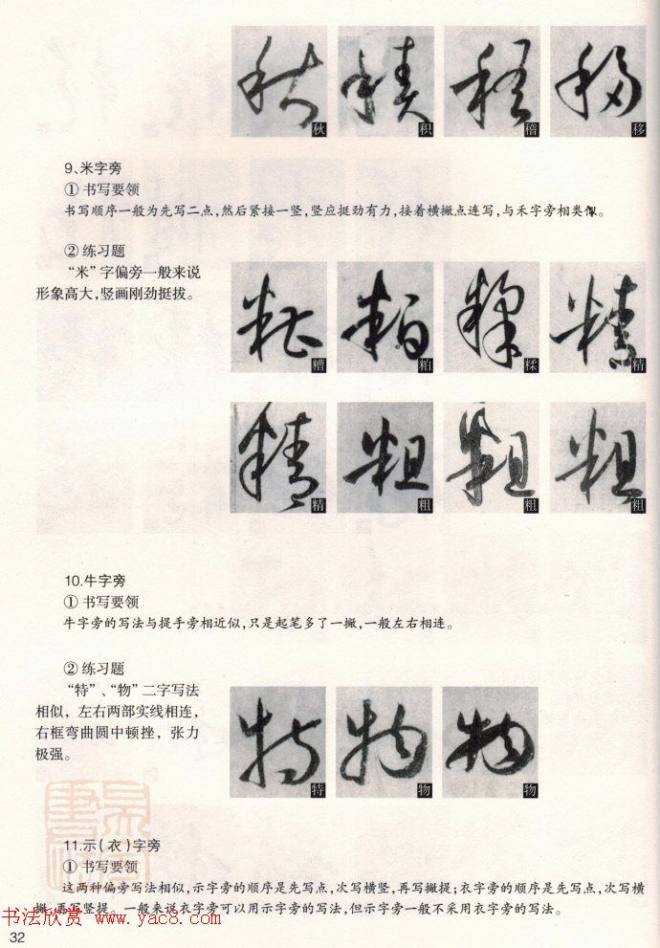 秋 积 稽 移
9.米字旁
①书写要领
书写顺序一般为先写二点,然后紧接一竖,竖应挺劲有力,接着横撇点连写,与禾字旁相类似。
②练习题
“米”字偏旁一般来说
形象高大,竖画刚劲挺拔。
糟 粕 糅 精
精 粗 粗 粗
10.牛字旁
①书写要领
牛字旁的写法与提手旁相近似,只是起笔多了一撇,一般左右相连。
②练习题
“特”、“物”二字写法
相似，左右两部实线相连，
右框弯曲圆中顿挫，张力
极强。
特 物 物
11.示(衣)字旁
①书写要领
这两种偏旁写法相似,示字旁的顺序是先写点,次写横竖,再写撇提;衣字旁的顺序是先写点,次写横
撇,再写竖提。一般来说衣字旁可以用示字旁的写法,但示字旁一般不采用衣字旁的写法。
书法欣赏 www.yac8.com
32